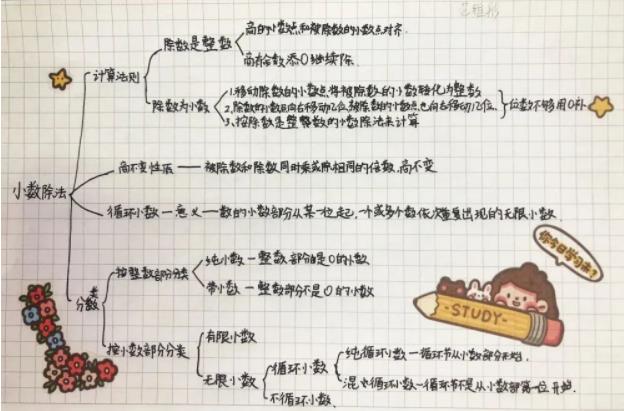 小数除法
计算法则
除数是整数
商的小数点和被除数的小数点对齐
商有余数添0继续除.
除数为小数
1.移动除数的小数点,将被除数的小数转化为整数
2.除数的小数点向右移动几位,被除数的小数点也向右移动几位.
3.按除数是整整数的小数除法来计算
位数不够用0补
商不变性质 — 被除数和除数同时乘或除相同的倍数,商不变
循环小数 — 意义 — 数的小数部分从某一位起,一个或多个数依次重复出现的无限小数.
分类
按整数部分分类
纯小数 — 整数部分是0的小数
带小数 — 整数部分不是0的小数
按小数部分分类
有限小数
无限小数
循环小数
纯循环小数 — 循环节从小数部分开始.
混循环小数 — 循环节不是从小数部第一位开始.
不循环小数.
你今日学习未?
-STUDY-